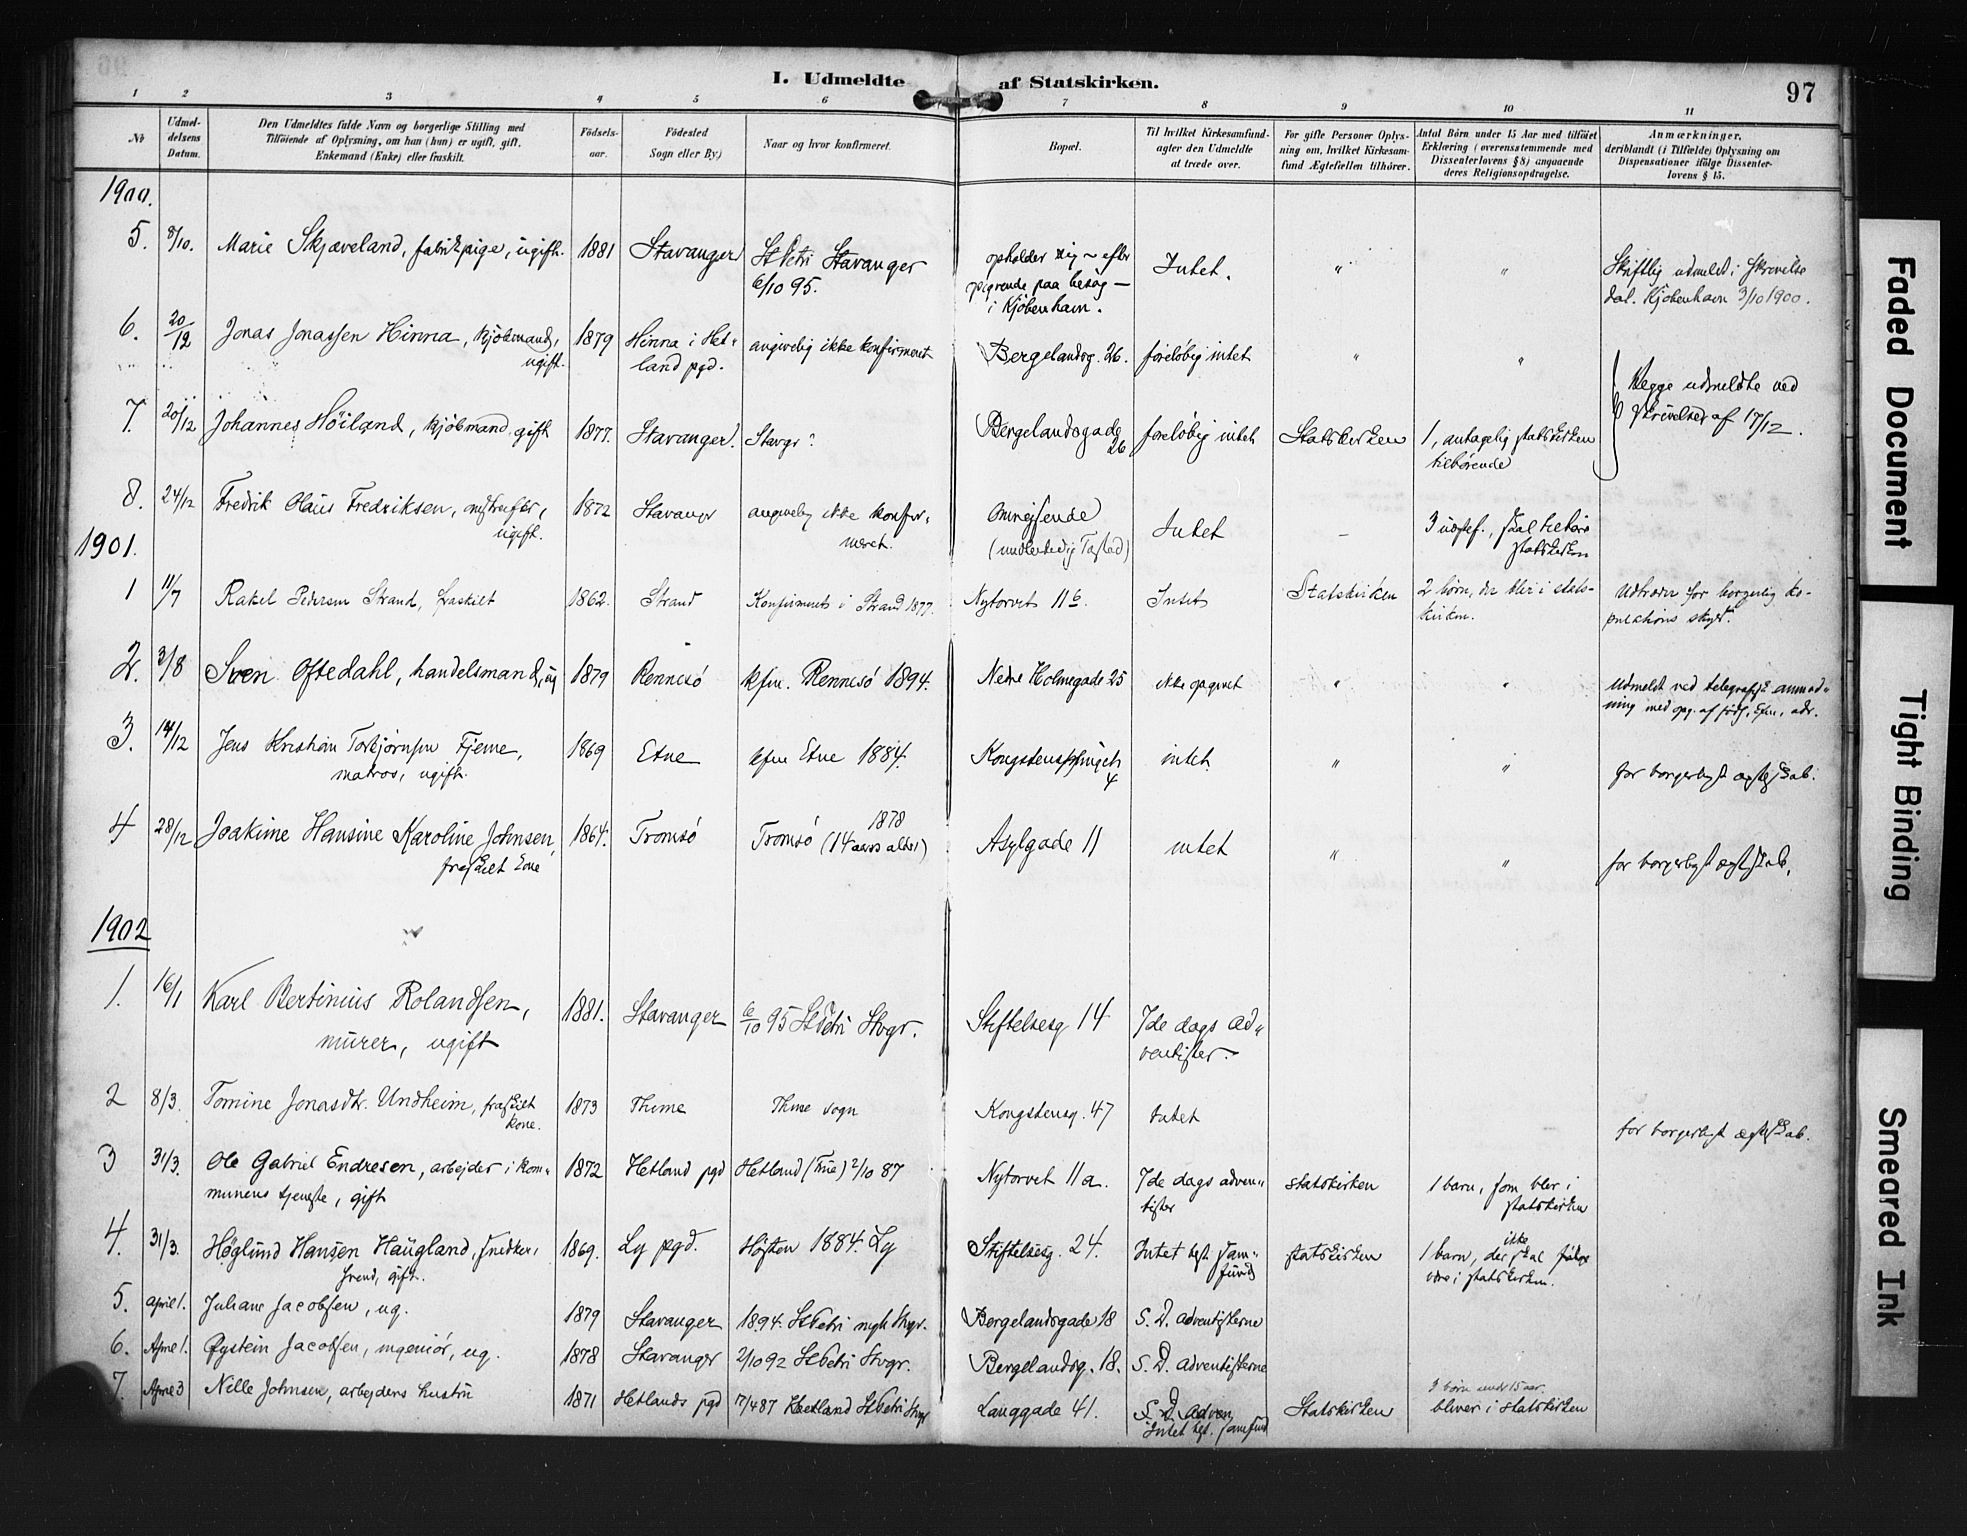 I. Udmeldte af Statskirken.
97
1 2 3 4 5 6 7 8 9 10 11
No
Udmel-
delsens
Datum.
Den Udmeldtes fulde Navn og borgerlige Stilling med
Tilföiende af Oplysning, om han (hun) er ugift, gift,
Enkemand (Enke) eller fraskilt.
Födsels-
aar.
Födested
Sogn eller By.)
Naar og hvor konfirmeret.
Bopæl.
Til hvilket Kirkesamfund-
agter den Udmeldte
at træde over.
For gifte Personer Oplys-
ning om, hvilket Kirkesam-
fund Ægtefællen tilhörer.
Antal Börn under 15 Aar med tilföiet
Erklæring (overensstemmende med
Dissenterlovens § 8) angaaende
deres Religionsopdragelse.
Anmærkninger,
deriblandt (i Tilfælde) Oplysning om
Dispensationer ifölge Dissenter-
lovens § 15.
1900.
5. 8/10. Marie Skjæveland, fabrikpige, ugift. 1881 Stavanger St Petri Stavanger
6/10 95.
opholder sig – efter
opgivende paa besøg –
i Kjøbenhavn.
Intet. " "
Skriftlig udmeldt i skrivelse
dat. Kjøbenhavn 3/10 1900.
6. 20/12 Jonas Jonassen Hinna, kjøbmand,
ugift.
1879 Hinna i Het-
land pgd.
angivelig ikke konfirmeret Bergelandsg. 26. foreløbig intet " "
Begge udmeldte ved
skrivelse af 17/12.
7. 20/12 Johannes Höiland, kjöbmand gift 1877. Stavanger. Stavgr? Bergelandsgade
26
foreløbig intet Statskirken 1, antagelig statskirken
tilhørende
8. 24/12 Fredrik Olaus Fredriksen,
ugift.
1872 Stavangr angivelig ikke konfir-
meret.
Omreisende
Intet – 3 uægtef., skal tilhøre
statskirken
1901.
1 11/7 Rakel Pedersen Strand, fraskilt 1862. Strand Konfirmeret i Strand 1877. Nytorvet 11b. Intet Statskirken 2 børn, der blir i stats-
kirken.
Udtræder for borgerlig ko-
pulations skyld.
2. 3/8 Sven Oftedahl, handelsmand, ug 1879 Rennesö kfm. Rennesö 1894. Nedre Holmegade 25 ikke opgivet " "
Udmeldt ved telegrafisk anmod-
ning med opg. af föds., kfm., adr.
3. 14/12 Jens Kristian Torbjørnsen Fjerne,
matros, ugift.
1869 Etne kfm Etne 1884. 4 intet. " " for borgerligt ægteskab.
4 28/12 Joakime Hansine Karoline Johnsen,
fraskilt kone
1864. Tromsö Tromsö (14 aars alder) 1878 Asylgade 11 intet " " for borgerligt ægteskab.
1902
1. 16/1 Karl Bertinius Rolandsen,
murer, ugift
1881. Stavanger 6/10 95 St Petri Stvgr. Stiftelsesg 14 7de dags ad-
ventister.
2 8/3. Tomine Jonasdtr. Undheim, fraskilt
kone.
1873 Thime Thime sogn Kongstensg. 47 intet for borgerligt ægteskab.
3 31/3. Ole Gabriel Endresen, arbejder i kom-
munens tjeneste, gift
1872 Hetland pgd Hetland (Frue) 2/10 87 Nytorvet 11a. 7de dags adven-
tister
statskirken 1 barn, som blir i
statskirken
4. 31/3. Høglund Hansen Haugland, snedker,
svend, gift.
1869. Ly pgd. Høsten 1884. Ly Stiftelsesg. 24. Intet bgt. sam-
fund
statskirken 1 barn, der ikke skal
være i statskirken.
5. april 1. Juliane Jacobsen, ug. 1879 Stavanger 1894. St Petri mgh Stvgr. Bergelandsgade 18 S. D. adventisterne
6. April 1. Øystein Jacobsen, ingeniör, ug. 1878 Stavanger 2/10 92 St Petri Stvgr. Bergelandsg. 18. S. D. adventisterne
7. April 3 Nelle Johnsen, arbejders hustru 1871 Hetlands pgd 17/4 87 Hetland St Petri Stvgr Langgade 41. S. D. Adven
Intet bgt. samfund
Statskirken 3 børn under 15 aar.
bliver i statskirken
Faded Document
Tight Binding
Smeared Ink